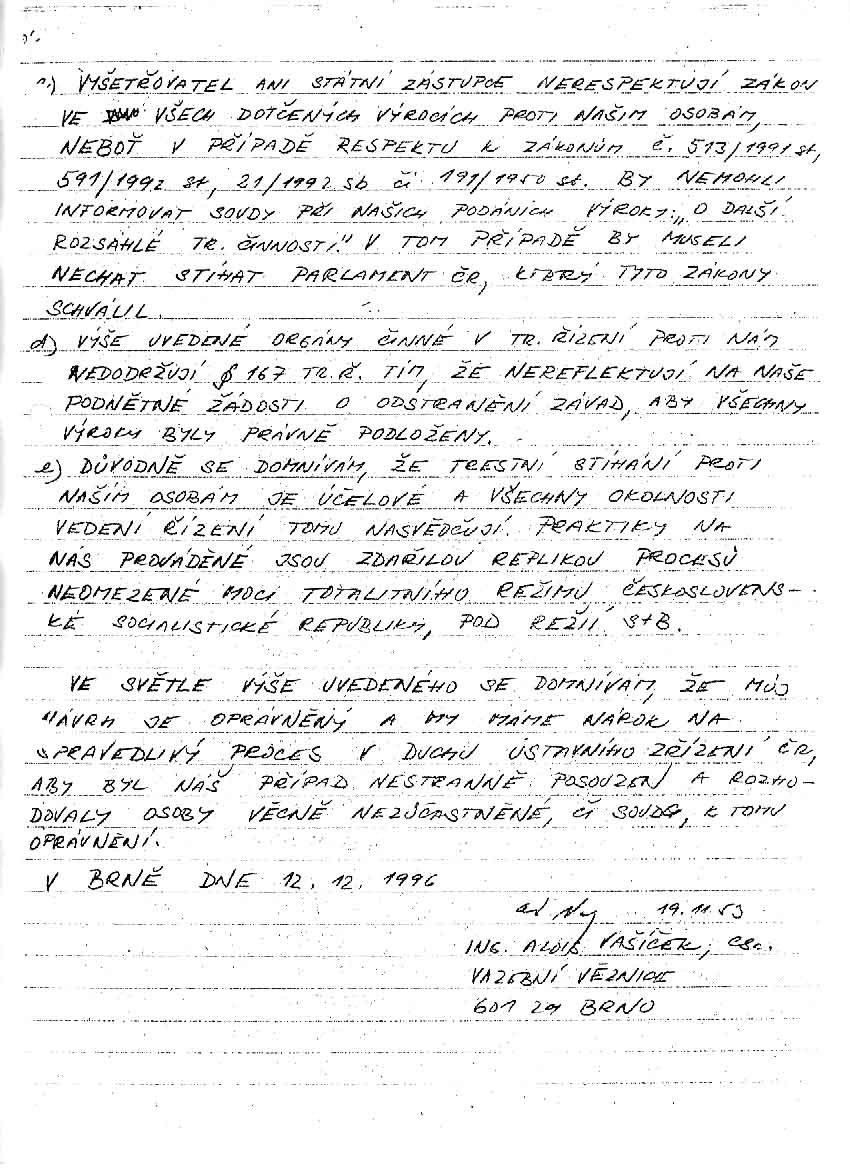 VYŠETŘOVATEL ANI STÁTNÍ ZÁSTUPCE NERESPEKTUJÍ ZÁKON
VE VŠECH DOTČENÝCH VÝROCÍCH PROTI NAŠIM OSOBÁM,
NEBOŤ V PŘÍPADĚ RESPEKTU K ZÁKONŮM Č. 513/1991 st,
591/1992 st, 21/1992 sb či 191/1950 st. BY NEMOHLI
INFORMOVAT SOUDY PŘI NAŠICH PODÁNÍCH VÝROKY: „O DALŠÍ
ROZSÁHLÉ TR. ČINNOSTI." V TOM PŘÍPADĚ BY MUSELI
NECHAT STÍHAT PARLAMENT ČR, KTERÝ TYTO ZÁKONY
SCHVÁLIL.
d) VÝŠE UVEDENÉ ORGÁNY ČINNÉ V TR. ŘÍZENÍ PROTI NÁM
NEDODRŽUJÍ § 167 TR.Ř. TÍM, ŽE NEREFLEKTUJÍ NA NAŠE
PODNĚTNÉ ŽÁDOSTI O ODSTRANĚNÍ ZÁVAD, ABY VŠECHNY
VÝROKY BYLY PRÁVNĚ PODLOŽENY.
e) DŮVODNĚ SE DOMNÍVÁM, ŽE TRESTNÍ STÍHÁNÍ PROTI
NAŠÍM OSOBÁM JE ÚČELOVÉ A VŠECHNY OKOLNOSTI
VEDENÍ ŘÍZENÍ TOMU NASVĚDČUJÍ. PRAKTIKY NA
NÁS PROVÁDĚNÉ JSOU ZDAŘILOU REPLIKOU PROCESŮ
NEOMEZENÉ MOCI TOTALITNÍHO REŽIMU ČESKOSLOVENS-
KÉ SOCIALISTICKÉ REPUBLIKY, POD REŽIÍ StB.
VE SVĚTLE VÝŠE UVEDENÉHO SE DOMNÍVÁM, ŽE MŮJ
NÁVRH JE OPRÁVNĚNÝ A MY MÁME NÁROK NA
SPRAVEDLIVÝ PROCES V DUCHU ÚSTAVNÍHO ZŘÍZENÍ ČR,
ABY BYL NÁŠ PŘÍPAD NESTRANNĚ POSOUZEN A ROZHO-
DOVALY OSOBY VĚCNĚ NEZÚČASTNĚNÉ, ČI SOUDG, K TOMU
OPRÁVNĚNÍ.
V BRNĚ DNE 12. 12. 1996
19.11.53
ING. ALOIS VAŠÍČEK, CSc.
VAZEBNÍ VĚZNICE
601 29 BRNO